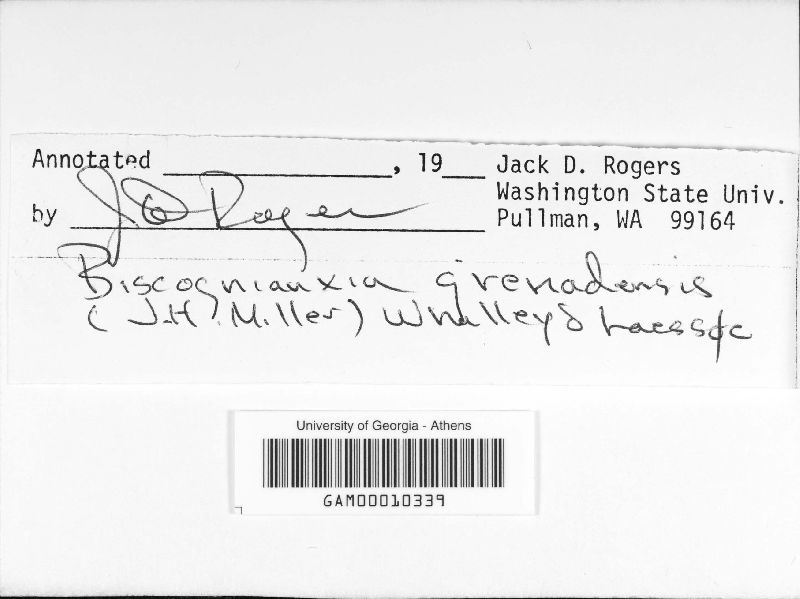 Annotated ____________, 19___ Jack D. Rogers
Washington State Univ.
by J D Rogers Pullman, WA 99164
Biscogniauxia grenadensis
(J.H. Miller) Whalley & Laessøe
University of Georgia - Athens
GAM00010339